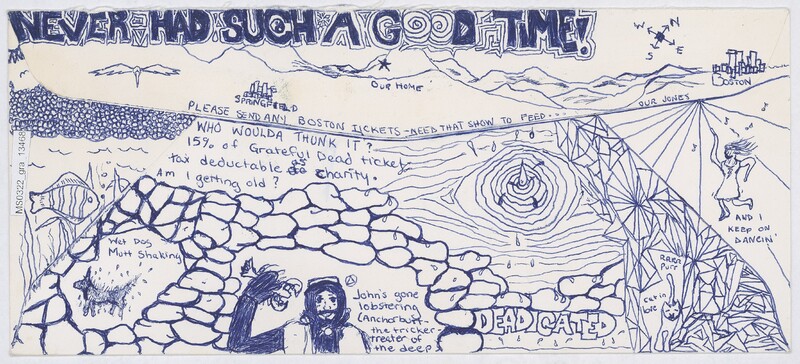 NEVER HAD SUCH A GOOD TIME!
N
W
E
S
OUR HOME
BOSTON
SPRINGFIELD
OUR JONES
PLEASE SEND ANY BOSTON TICKETS - NEED THAT SHOW TO FEED...
WHO WOULDA THUNK IT?
15% of Grateful Dead ticket
tax deductable as charity.
Am I getting old?
MS0322_gra_13468
AND I
KEEP ON
DANCIN'
Wet Dog
Mutt Shaking
RRRR
Purr
cat in
love
John's gone
lobstering
the tricker-
treater of
the deep
DEADICATED